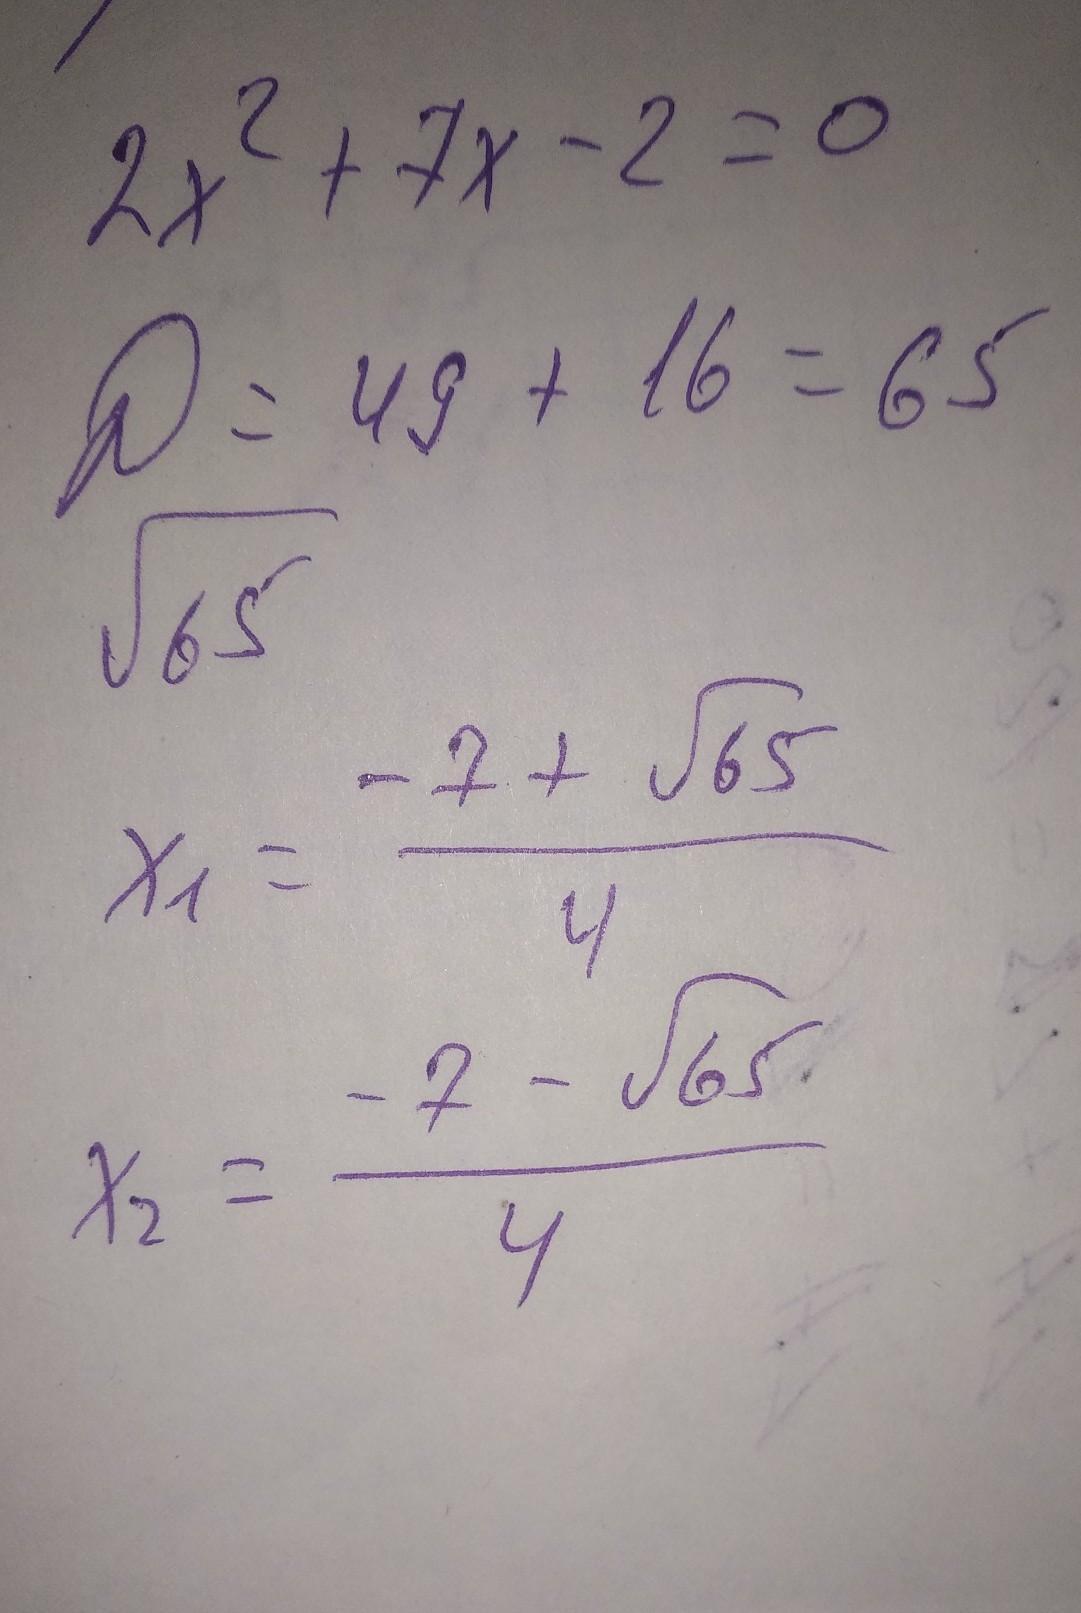 2x² + 7x - 2 = 0
D = 49 + 16 = 65
√65
x₁ = (-7 + √65) / 4
x₂ = (-7 - √65) / 4